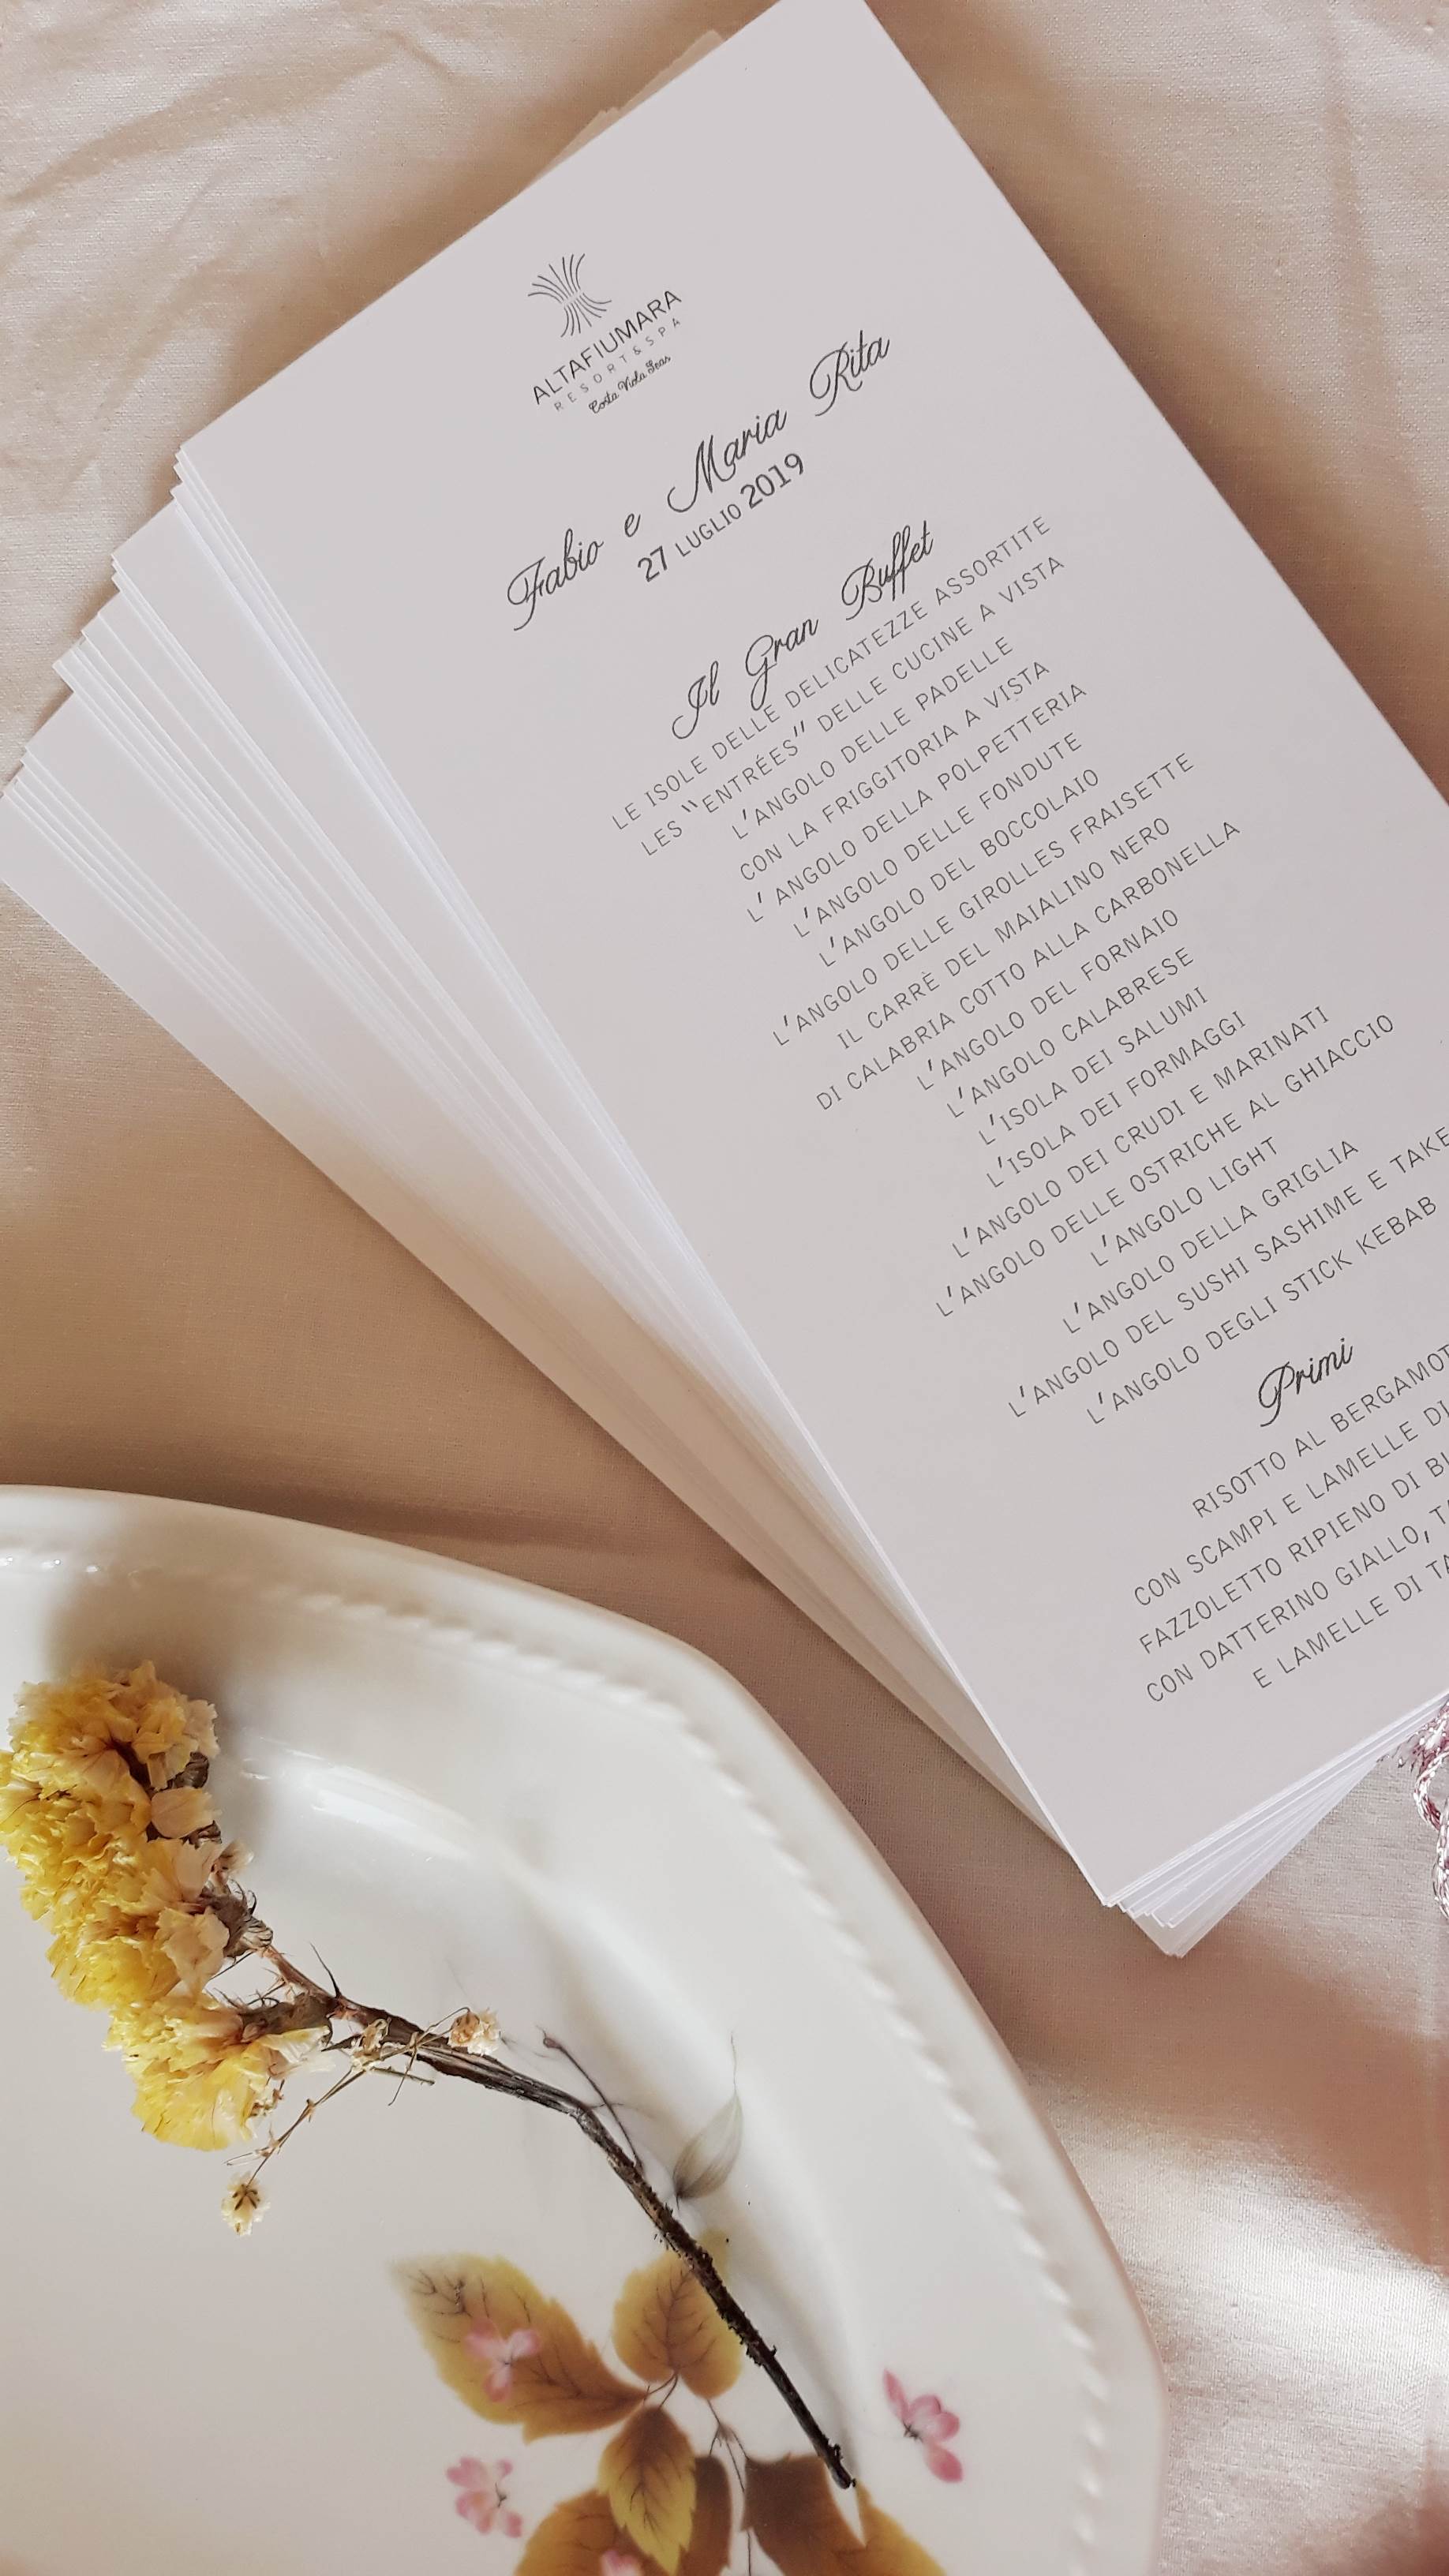 ALTAFIUMARA
RESORT & SPA
Costa Viola Seas
Fabio e Maria Rita
27 LUGLIO 2019
Il Gran Buffet
LE ISOLE DELLE DELICATEZZE ASSORTITE
LES “ENTRÉES” DELLE CUCINE A VISTA
L'ANGOLO DELLE PADELLE
CON LA FRIGGITORIA A VISTA
L' ANGOLO DELLA POLPETTERIA
L'ANGOLO DELLE FONDUTE
L'ANGOLO DEL BOCCOLAIO
L'ANGOLO DELLE GIROLLES FRAISETTE
IL CARRÈ DEL MAIALINO NERO
DI CALABRIA COTTO ALLA CARBONELLA
L'ANGOLO DEL FORNAIO
L'ANGOLO CALABRESE
L'ISOLA DEI SALUMI
L'ISOLA DEI FORMAGGI
L'ANGOLO DEI CRUDI E MARINATI
L'ANGOLO DELLE OSTRICHE AL GHIACCIO
L'ANGOLO LIGHT
L'ANGOLO DELLA GRIGLIA
L'ANGOLO DEL SUSHI SASHIME E TAKE
L'ANGOLO DEGLI STICK KEBAB
Primi
RISOTTO AL BERGAMOT
CON SCAMPI E LAMELLE DI
FAZZOLETTO RIPIENO DI
CON DATTERINO GIALLO,
E LAMELLE DI